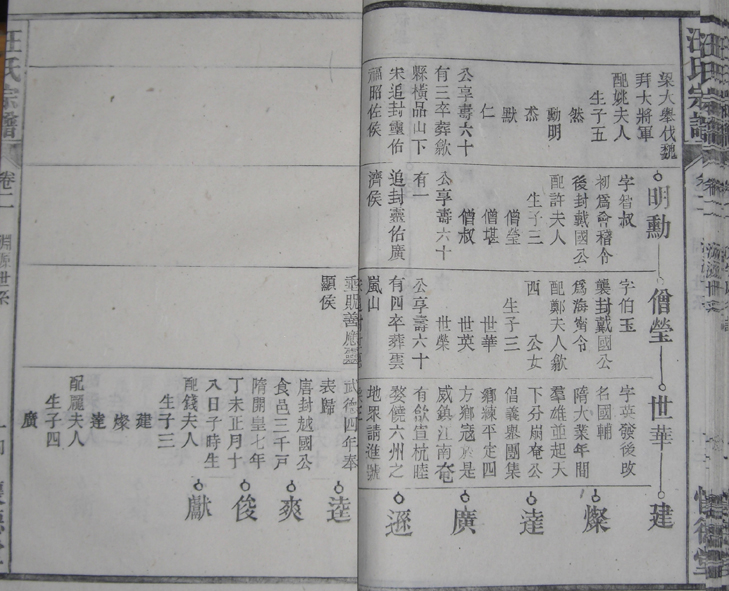 汪氏宗譜
梁大舉伐魏
拜大將軍
配姚夫人
生子五
然
勳明
杰
默
仁
公享壽六十
有三卒葬歙
縣橫品山下
宋追封靈佑
福昭佐侯
明勳
字智叔
初為會稽令
後封戴國公
配許夫人
生子三
僧瑩
僧堪
僧叔
公享壽六十
有一
追封靈佑廣
濟侯
僧瑩
字伯玉
襲封戴國公
為海甯令
配鄭夫人歙
西 公女
生子三
世華
世英
世榮
公享壽六十
有四卒葬雲
嵐山
顯侯
世華
字英發後改
名國輔
隋大業年間
羣雄並起天
下分崩奄公
倡義舉團集
鄉練平定四
方鄉寇於是
威鎮江南奄
有歙宣杭睦
婺饒六州之
地眾請進號
武德四年奉
表歸
唐封越國公
食邑三千戶
隋開皇七年
丁未正月十
八日子時生
配錢夫人
生子三
建
燦
達
配龐夫人
生子四
廣
建
燦
達
廣
遜
逵
爽
俊
獻
汪氏宗譜
卷二